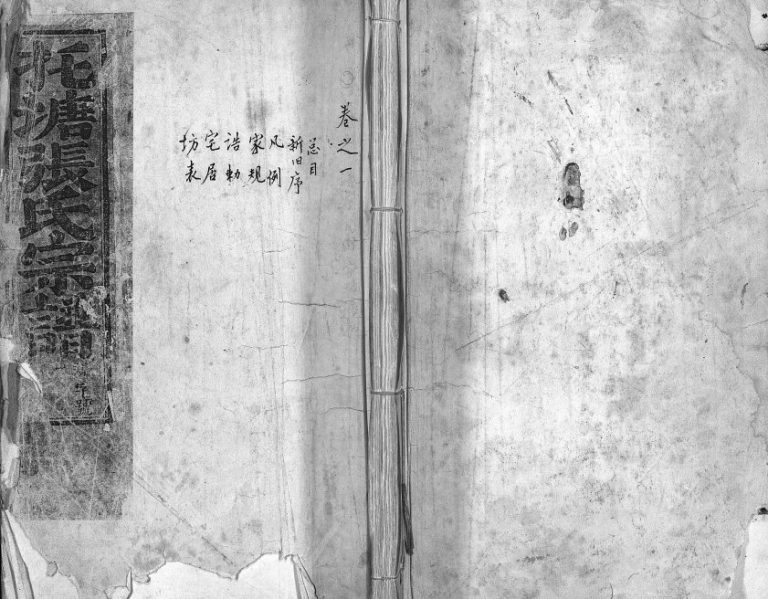 卷之一
总目
新旧序
凡例
家規
誥勅
宅居
坊表
塘張氏宗譜